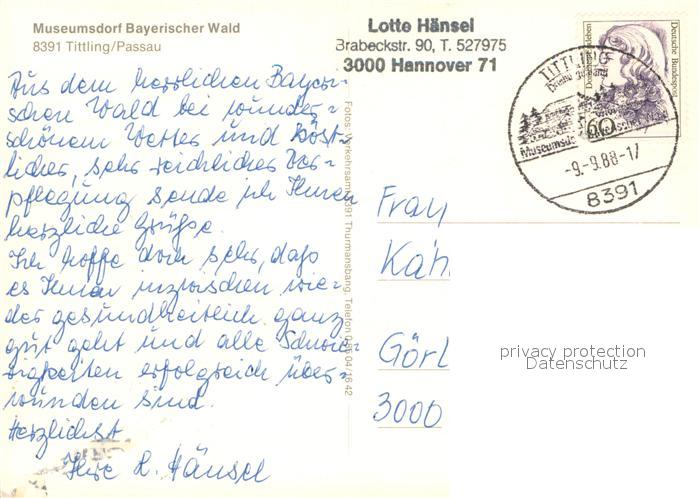 Museumsdorf Bayerischer Wald
8391 Tittling/Passau
Lotte Hänsel
Brabeckstr. 90, T. 527975
3000 Hannover 71
Deutsche Bundespost
60
TITTLING
Museumsdorf Bayerischer Wald
-9.-9.88-17
8391
Aus dem herrlichen Bayeri-
schen Wald bei wunder-
schönem Wetter und köst-
licher, sehr reichlicher Ver-
pflegung sende ich Ihnen
herzliche Grüße.
Ich hoffe doch sehr, daß
es Ihnen inzwischen wie-
der gesundheitlich ganz
gut geht und alle Schwie-
rigkeiten erfolgreich über-
wunden sind.
Herzlichst
Ihre L. Hänsel
Fotos: Verkehrsamt 8391 Thurmansbang, Telefon
Frau
Kah
Görl
3000
privacy protection
Datenschutz